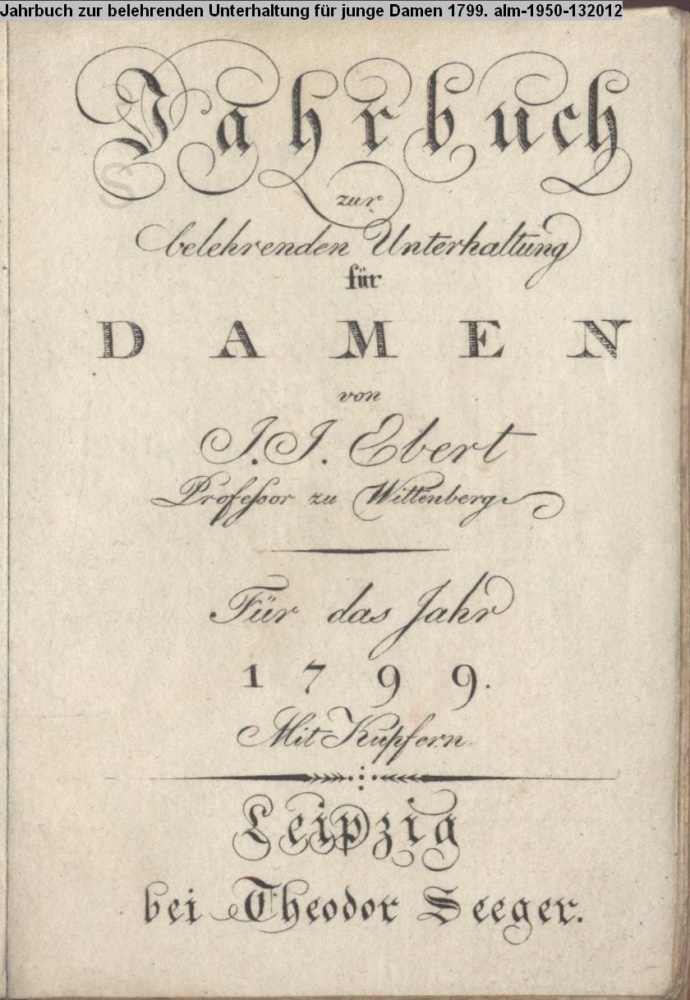 Jahrbuch zur belehrenden Unterhaltung für junge Damen 1799. alm-1950-132012
Jahrbuch
zur
belehrenden Unterhaltung
für
DAMEN
von
J. J. Ebert
Professor zu Wittenberg
Für das Jahr
1799.
Mit Kupfern.
Leipzig
bei Theodor Seeger.